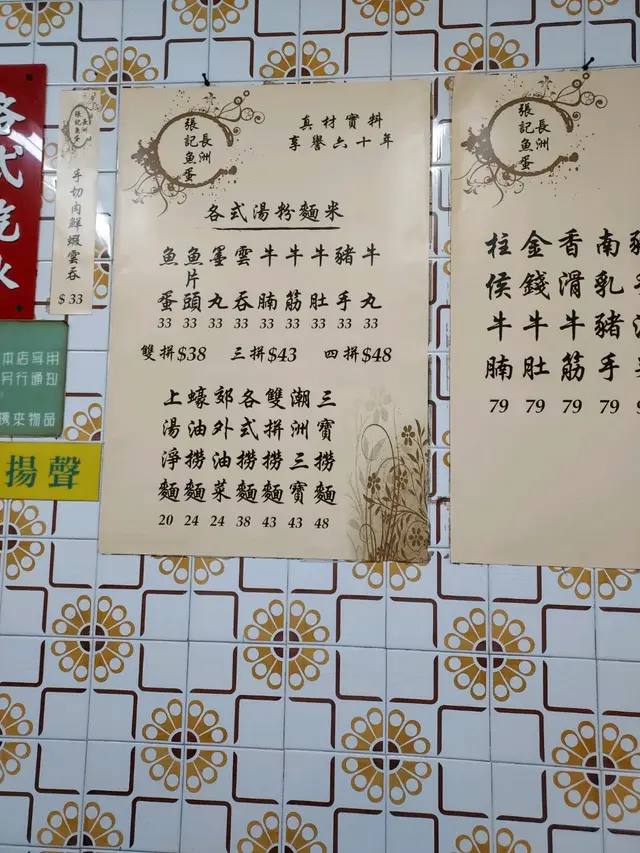 各式汽水
長洲
張記魚蛋
手切肉鮮蝦雲吞
$33
本店
另行通知
來物品
揚聲
長洲
張記魚蛋
真材實料
享譽六十年
各式湯粉麵米
魚蛋 33
魚片頭 33
墨丸 33
雲吞 33
牛腩 33
牛筋 33
牛肚 33
豬手 33
牛丸 33
雙拼$38 三拼$43 四拼$48
上湯淨麵 20
蠔油撈麵 24
郊外油菜 24
各式撈麵 38
雙拼撈麵 43
潮洲三寶 43
三寶撈麵 48
長洲
張記魚蛋
柱侯牛腩 79
金錢牛肚 79
香滑牛筋 79
南乳豬手 79